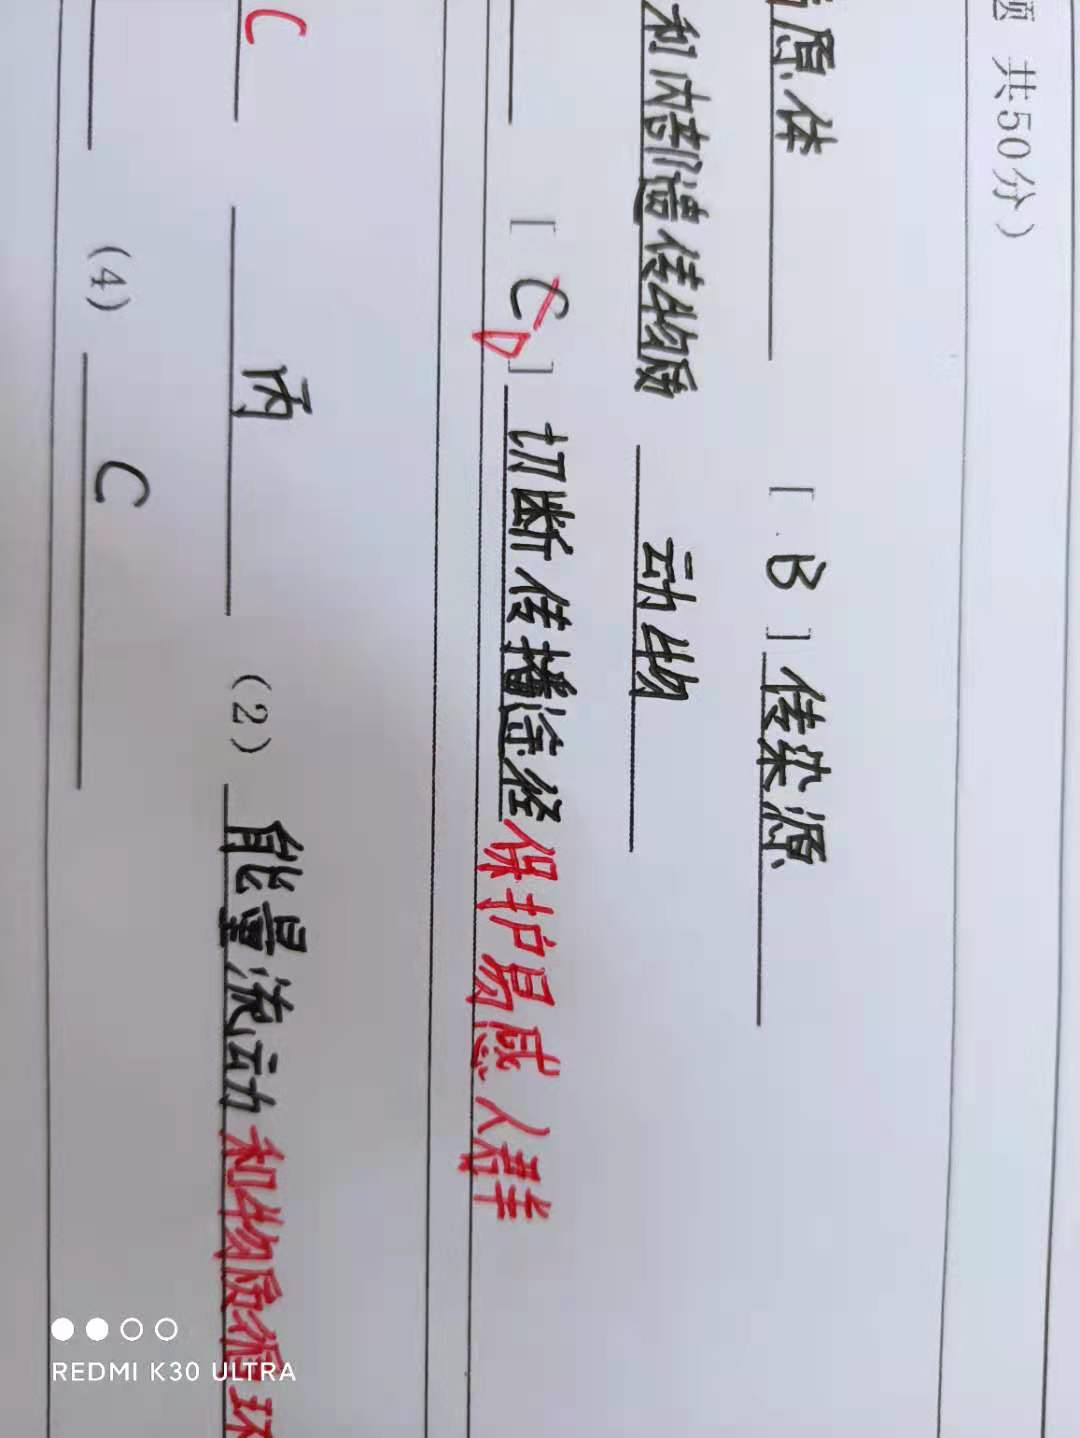 题 共50分）
原体 [ B ] 传染源
和内部遗传物质 动物
[ C D ] 切断传播途径保护易感人群
C 丙 （2） 能量流动和物质循环
（4） C
REDMI K30 ULTRA